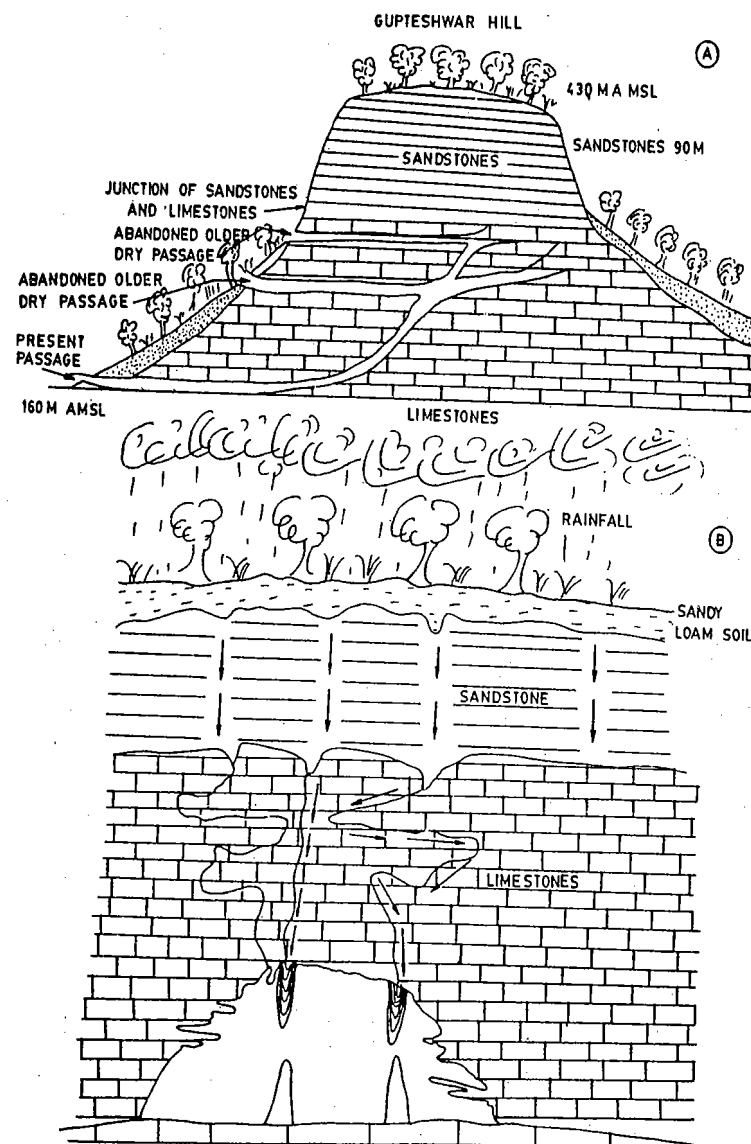 GUPTESHWAR HILL
A
430 M A MSL
SANDSTONES 90M
SANDSTONES
JUNCTION OF SANDSTONES
AND LIMESTONES
ABANDONED OLDER
DRY PASSAGE
ABANDONED OLDER
DRY PASSAGE
PRESENT
PASSAGE
160 M AMSL
LIMESTONES
RAINFALL
B
SANDY
LOAM SOIL
SANDSTONE
LIMESTONES